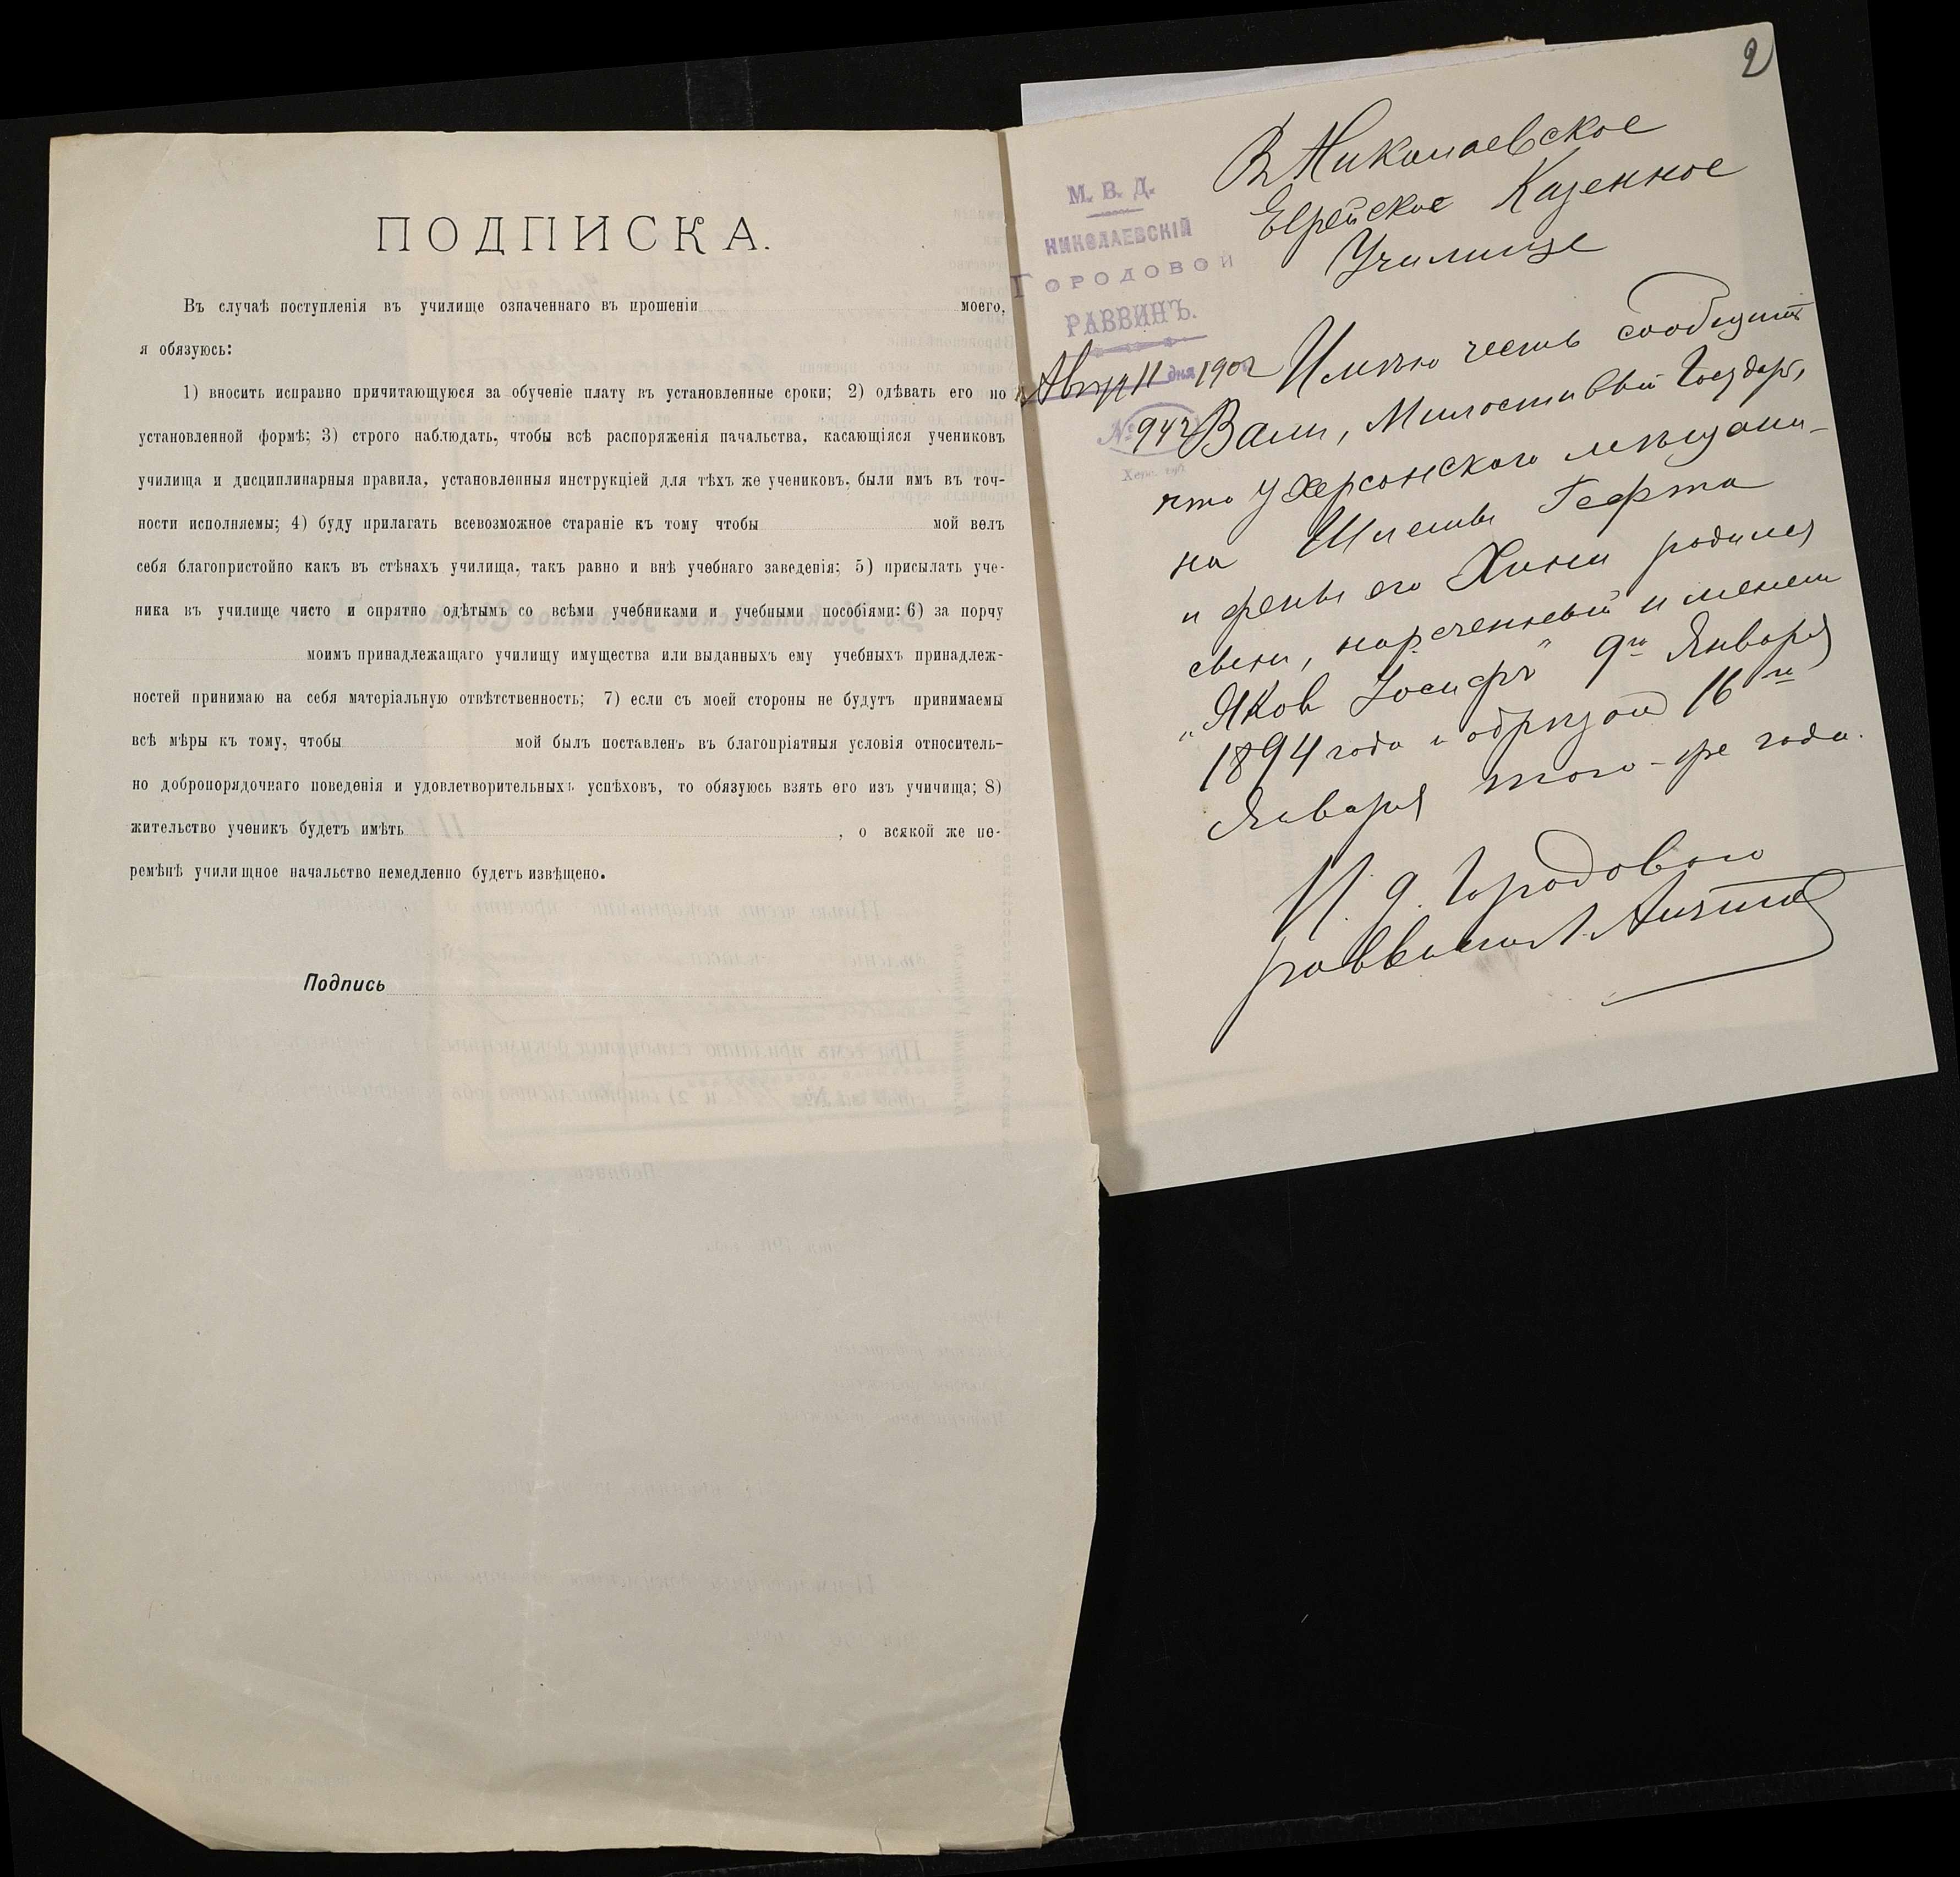 ПОДПИСКА.
Въ случаѣ поступленія въ училище означеннаго въ прошеніи моего,
я обязуюсь:
1) вносить исправно причитающуюся за обученіе плату въ установленные сроки; 2) одѣвать его по
установленной формѣ; 3) строго наблюдать, чтобы всѣ распоряженія начальства, касающіяся учениковъ
училища и дисциплинарныя правила, установленныя инструкціей для тѣхъ же учениковъ, были имъ въ точ-
ности исполняемы; 4) буду прилагать всевозможное стараніе къ тому чтобы мой велъ
себя благопристойно какъ въ стѣнахъ училища, такъ равно и внѣ учебнаго заведенія; 5) присылать уче-
ника въ училище чисто и опрятно одѣтымъ со всѣми учебниками и учебными пособіями: 6) за порчу
моимъ принадлежащаго училищу имущества или выданныхъ ему учебныхъ принадлеж-
ностей принимаю на себя матеріальную отвѣтственность; 7) если съ моей стороны не будутъ принимаемы
всѣ мѣры къ тому, чтобы мой былъ поставленъ въ благопріятныя условія относитель-
но добропорядочнаго поведенія и удовлетворительныхъ успѣховъ, то обязуюсь взять его изъ учичища; 8)
жительство ученикъ будетъ имѣть , о всякой же пе-
ремѣнѣ училищное начальство немедленно будетъ извѣщено.
Подпись
2
В Николаевское
Еврейское Казенное
Училище
М. В. Д.
НИКОЛАЕВСКІЙ
ГОРОДОВОЙ
РАВВИНЪ.
11 дня 1902
№ 942
Херс. губ.
Имѣю честь сообщить
Вам, Милостивый Государь,
что у Херсонского мѣщани-
на Шлемы Гефта
и жены его Хини родился
сын, нареченный именем
„Яков Іосифъ" 9го Января
1894 года и обрѣзан 16го
Января того-же года.
И. д. Городового
раввина